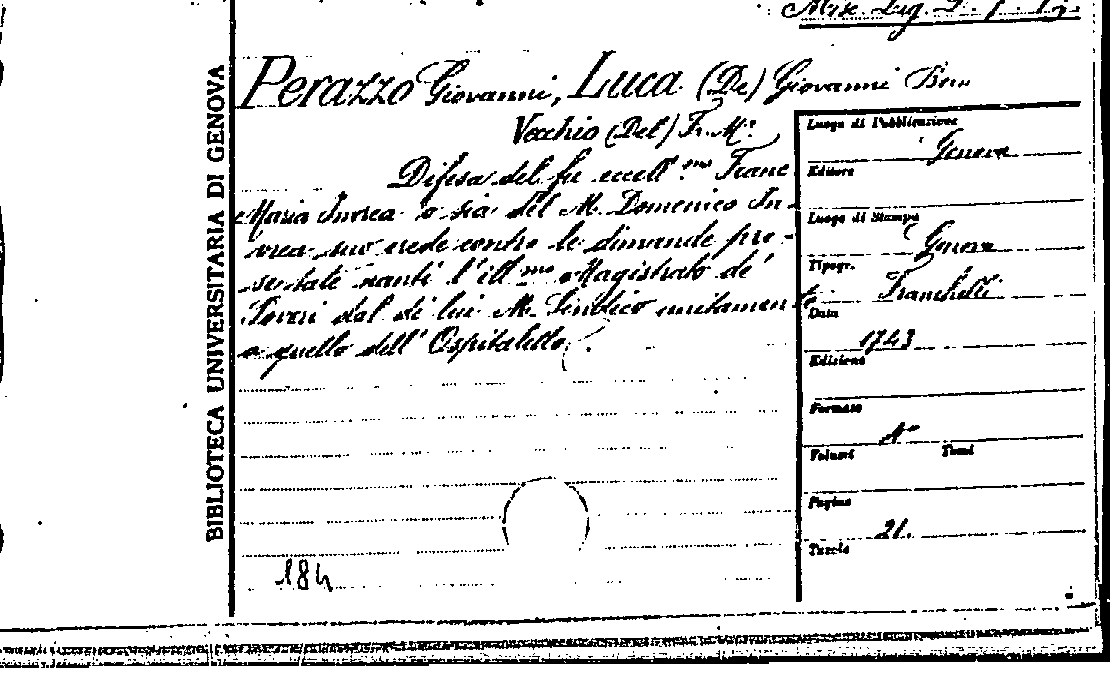 Misc. Lig.
Perazzo Giovanni, Luca (De) Giovanni
Vecchio (Del) Fr. Mª.
Difesa del fu eccell.mo Franc
Maria Invrea o sia del M. Domenico In-
vrea suo erede contro le dimande pre-
sentate nanti l'ill.mo Magistrato de'
Poveri dal di lui M. Sindico unitamente
a quello dell' Ospitaletto.
184
BIBLIOTECA UNIVERSITARIA DI GENOVA
Luogo di Pubblicazione
Genova
Editore
Luogo di Stampa
Genova
Tipogr.
Franchelli
Data
1743
Edizione
Formato
4°
Volumi Tomi
Pagine
21.
Tavole